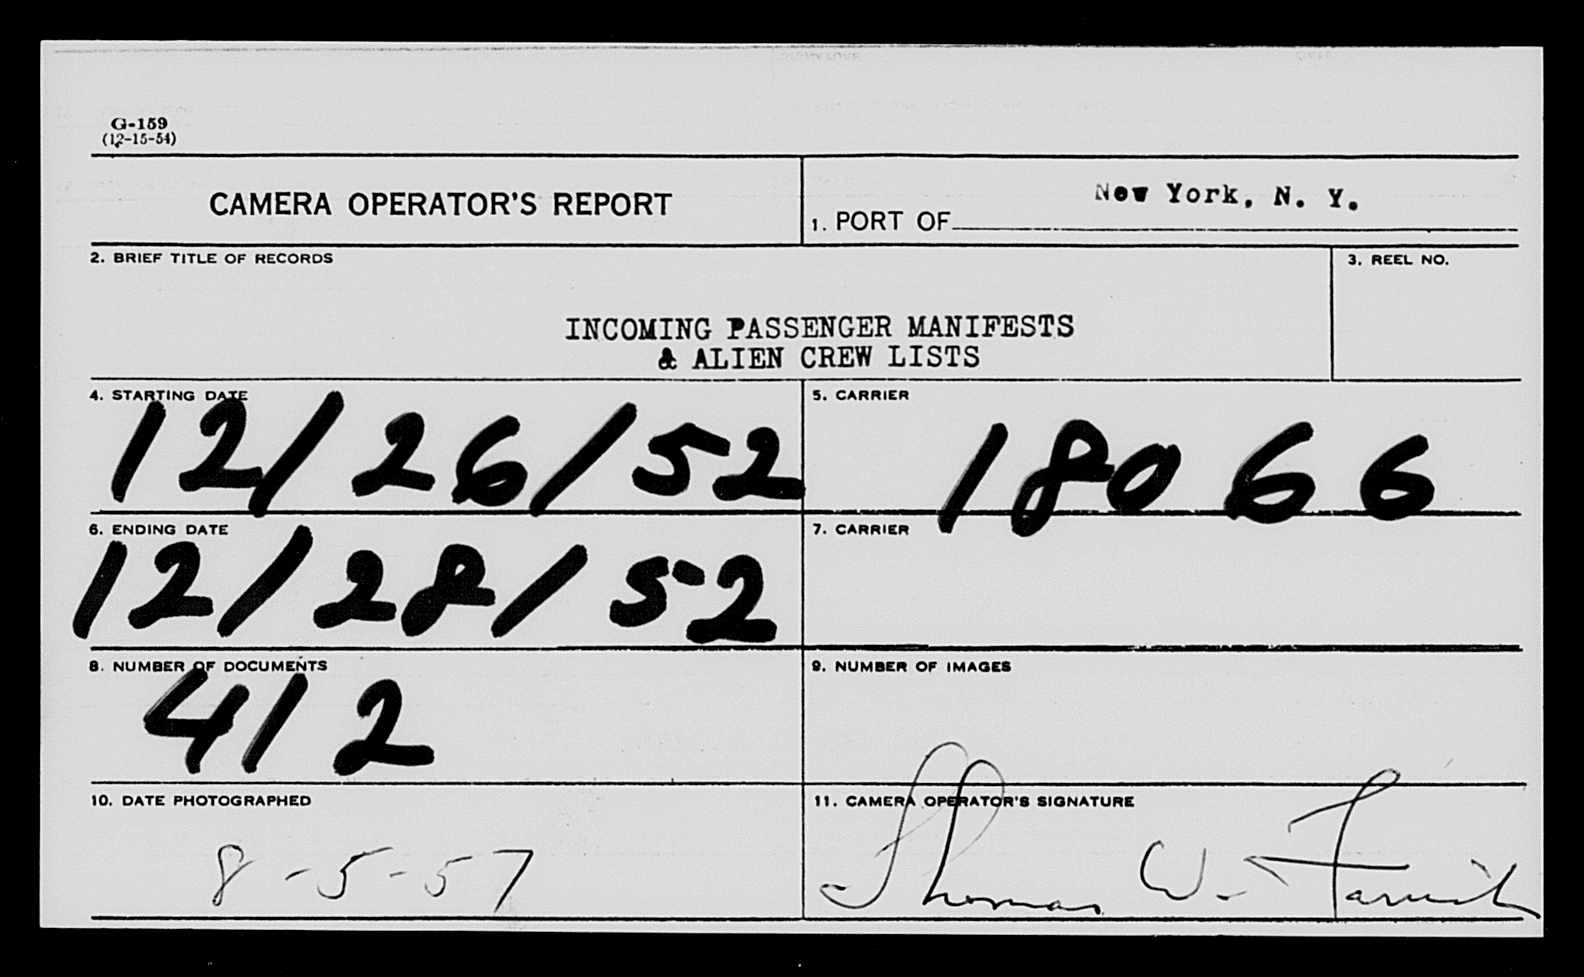 G-159
(12-15-54)
CAMERA OPERATOR'S REPORT
1. PORT OF New York, N. Y.
2. BRIEF TITLE OF RECORDS
INCOMING PASSENGER MANIFESTS
& ALIEN CREW LISTS
3. REEL NO.
4. STARTING DATE
12/26/52
5. CARRIER
18066
6. ENDING DATE
12/28/52
7. CARRIER
8. NUMBER OF DOCUMENTS
412
9. NUMBER OF IMAGES
10. DATE PHOTOGRAPHED
8-5-57
11. CAMERA OPERATOR'S SIGNATURE
Thomas W.